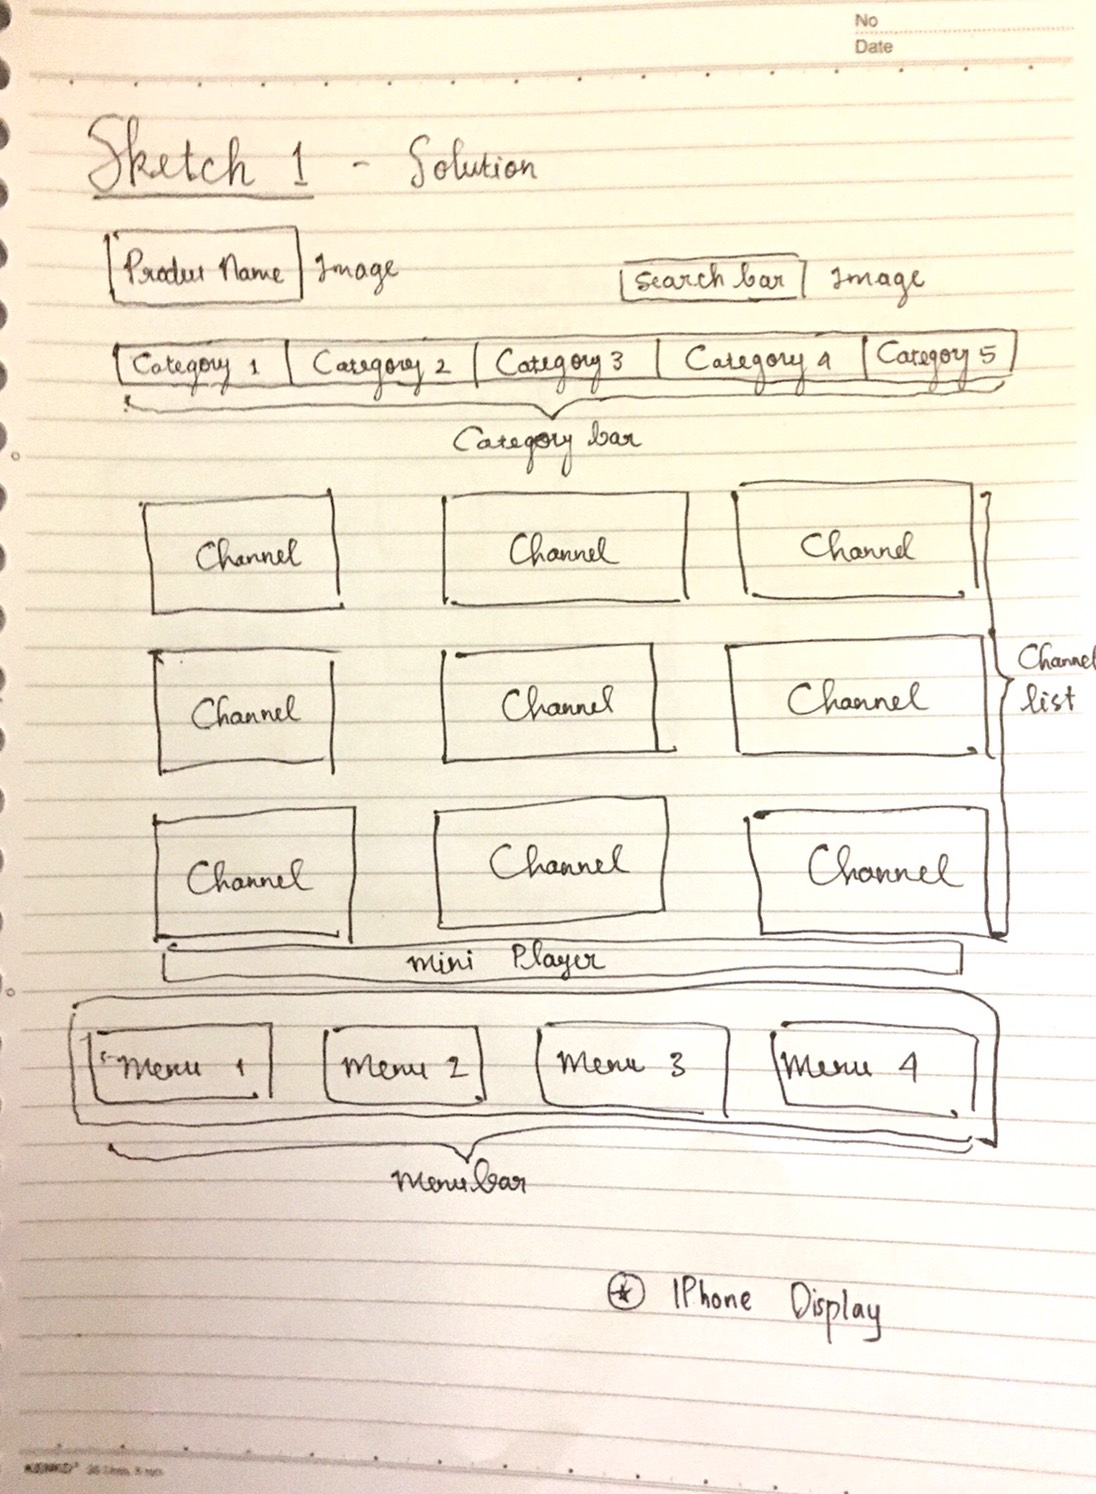 No
Date
Sketch 1 - Solution
Image
Search bar Image
Category 1 Category 2 Category 3 Category 4 Category 5
Category bar
Channel Channel Channel
Channel Channel Channel
Channel list
Channel Channel Channel
mini Player
Menu 1 Menu 2 Menu 3 Menu 4
Menu bar
IPhone Display